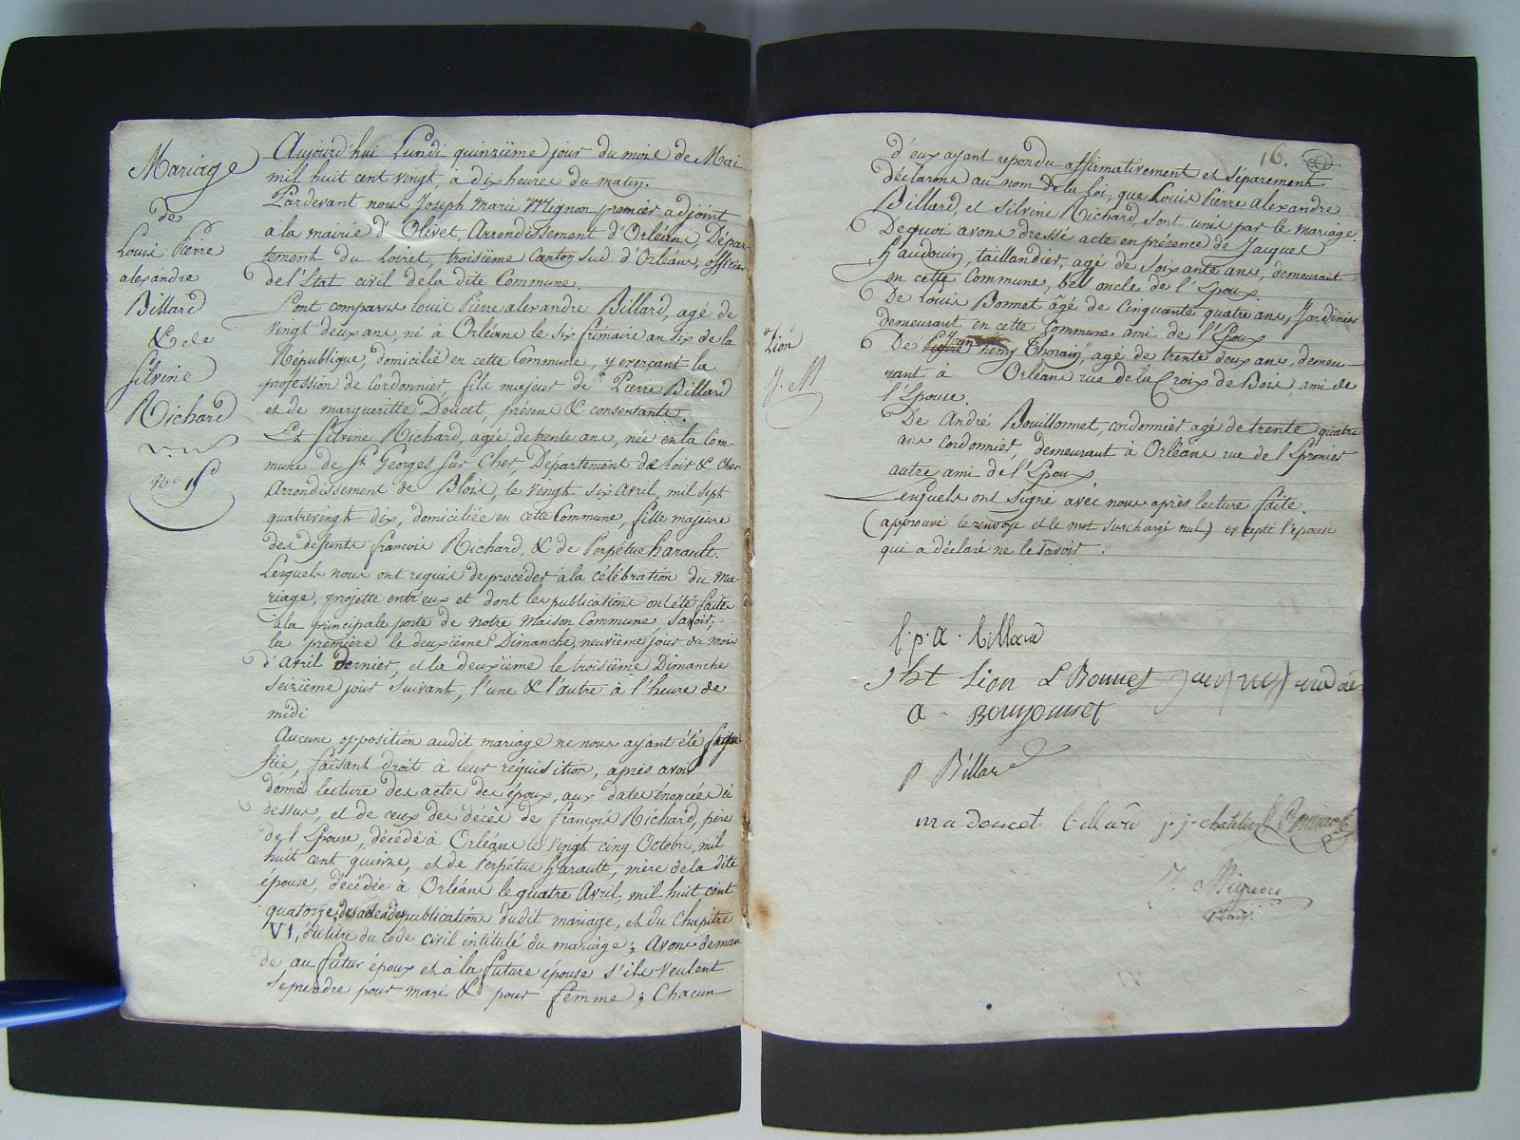 Mariage
de
Louis Pierre
alexandre
Billard
& de
Silvine
Richard
Aujourd'hui Lundi quinzième jour du mois de Mai
mil huit cent vingt, à dix heures du matin.
Pardevant nous Joseph Marie Mignon premier adjoint
a la mairie d'Olivet, Arrondissement d'Orléans, Dépar-
tement du loiret, troisième Canton sud d'Orléans, officier
de l'Etat civil de la dite Commune.
Sont comparus Louis Pierre alexandre Billard, agé de
vingt deux ans, né à Orléans le six frimaire an six de la
République, domicilié en cette Commune, y exerçant la
profession de Cordonnier, fils majeur de Pierre Billard
et de margueritte Doucet, présens & consentants.
Et Silvine Richard, agée de trente ans, née en la Com-
mune de St. Georges sur Cher, Département de loir & Cher
Arrondissement de Blois, le vingt six avril, mil sept
quatrevingt dix, domiciliée en cette Commune, fille majeure
des défunts françois Richard, & de Perpétue harault.
Lesquels nous ont requis de procéder à la célébration du ma-
riage, projetté entr'eux et dont les publications ont été faites
à la principale porte de notre maison Commune, savoir,
la première le deuxième Dimanche, neuvième jour du mois
d'Avril dernier, et la deuxième le troisième Dimanche
seizième jour suivant, l'une & l'autre à l'heure de
midi
Aucune opposition audit mariage ne nous ayant été signi
fiée, faisant droit à leur réquisition, après avoir
donné lecture des actes des époux, aux dates énoncées ci
dessus, et de ceux des décès de françois Richard, père
de l'Epouse, décédé à Orléans le vingt cinq Octobre, mil
huit cent quinze, et de Perpétue harault, mère de la dite
épouse, décédée à Orléans le quatre Avril, mil huit cent
quatorze, des actes de publications dudit mariage, et du Chapitre
VI, du titre du Code civil intitulé du mariage ; Avons deman
dé au futur époux et à la future épouse s'ils veulent
se prendre pour mari & pour femme ; Chacun
16.
d'eux ayant repondu affirmativement et séparement
déclarons au nom de la loi, que Louis Pierre alexandre
Billard, et Silvine Richard, sont unis par le mariage.
De quoi avons dressé acte en présence de Jacques
haudouin, taillandier, agé de soixante ans, demeurant
en cette Commune, bel oncle de l'Epoux.
De Louis Bonnet âgé de Cinquante quatre ans, Jardinier
demeurant en cette Commune ami de l'Epoux
Lion
J. M
De henry agé de trente deux ans, demeu-
rant à Orléans rue de la Croix de Bois, ami de
l'Epouse.
De André Bouillonnet, cordonnier agé de trente quatre
ans cordonnier, demeurant à Orléans rue de l'Epervier
autre ami de l'Epoux
Lesquels ont signé avec nous après lecture faite.
(approuvé le renvoye et le mot surchargé nul) excepté l'epouse
qui a déclaré ne le savoir.
l. p. a. billard
Lion L Bonnet
a. Bouyonnet
p Billard
ma doucet billard
J. Mignon